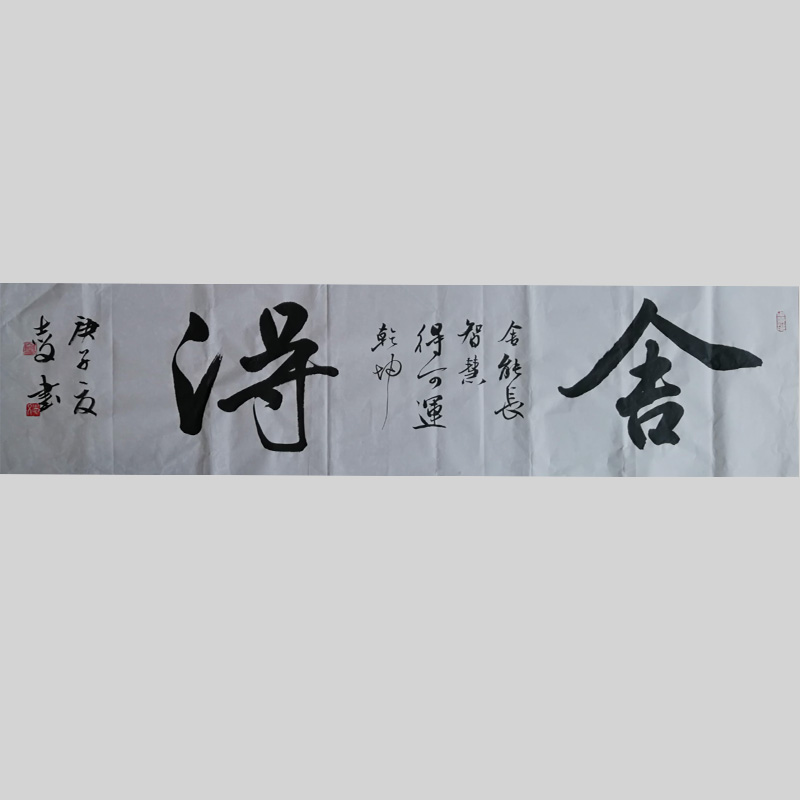 舍
舍能長
智慧
得可運
乾坤
得
庚子夏
書